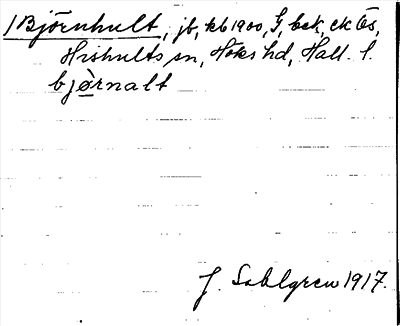 /Björnhult, jb, kb 1900, G, bek, ek Ös,
Hishults sn, Höks hd, Hall. l.
bjørnalt
J. Sahlgren 1917.